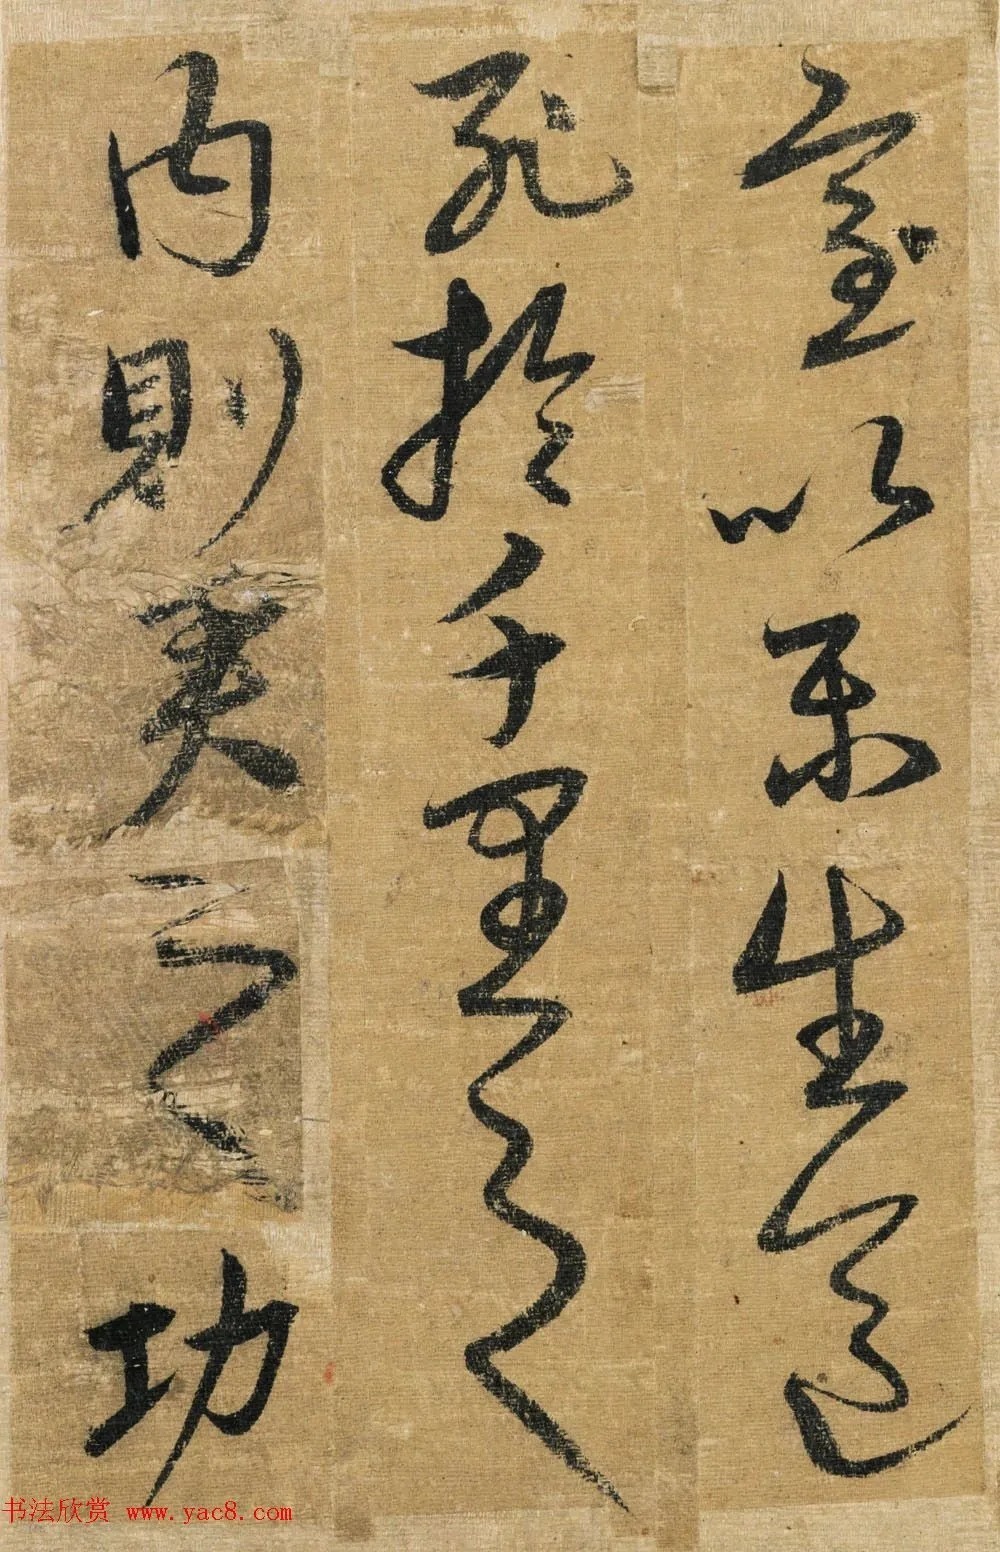 室以樂生送
死於千里之
内則美之功
书法欣赏 www.yac8.com